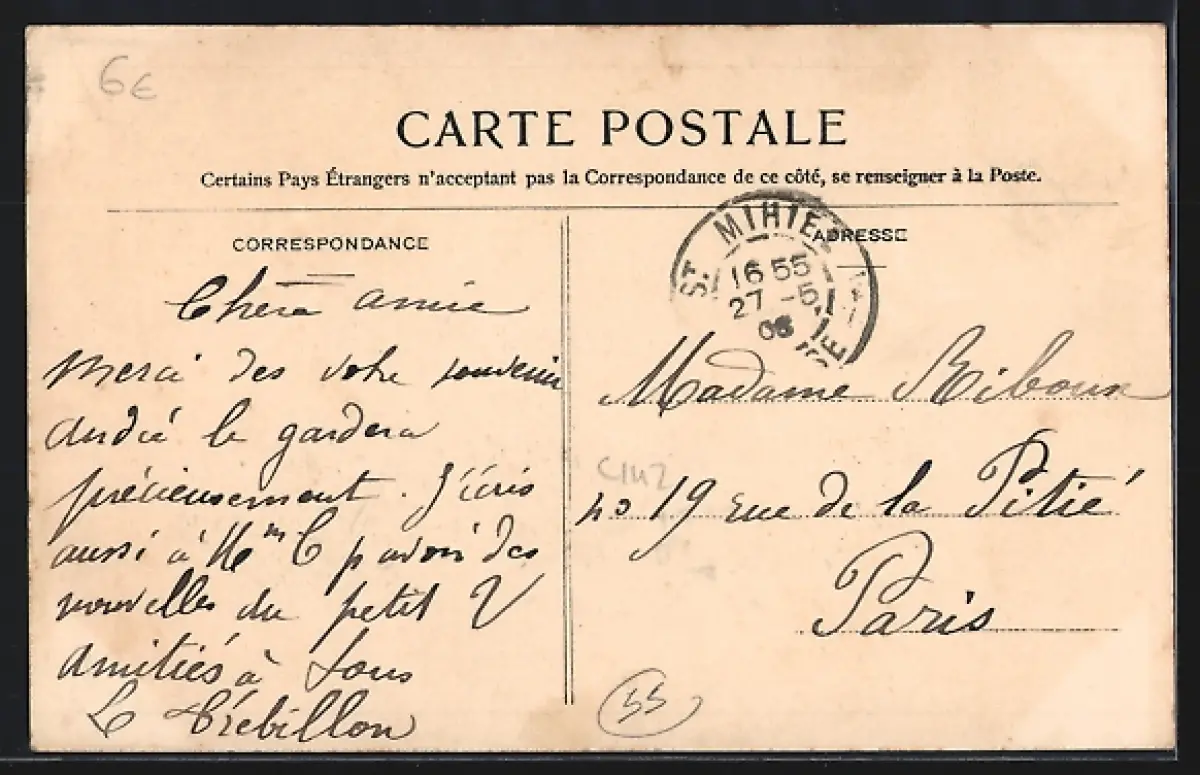 6€
CARTE POSTALE
Certains Pays Étrangers n'acceptant pas la Correspondance de ce côté, se renseigner à la Poste.
CORRESPONDANCE
ADRESSE
ST MIHIEL
16 55
27 - 5
06
Chère amie
Merci des votre souvenir
André le gardera
précieusement. J'écris
aussi à Mm C p avoir des
nouvelles du petit V
Amitiés à tous
L Crébillon
Madame Riboux
19 rue de la Pitié
Paris
55